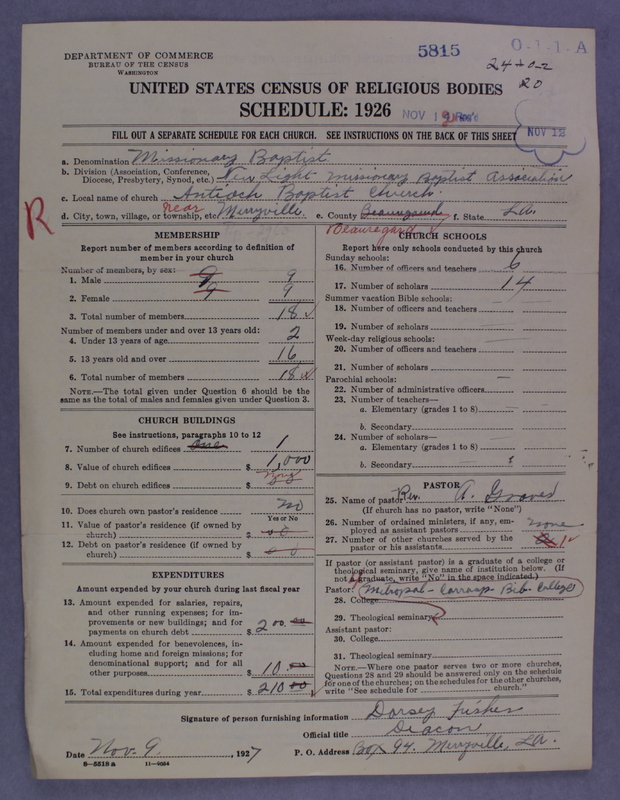 DEPARTMENT OF COMMERCE
BUREAU OF THE CENSUS
WASHINGTON
5815
O-1-1-A
24-0-2
20
UNITED STATES CENSUS OF RELIGIOUS BODIES
SCHEDULE: 1926
NOV 12
FILL OUT A SEPARATE SCHEDULE FOR EACH CHURCH. SEE INSTRUCTIONS ON THE BACK OF THIS SHEET
a. Denomination Missionary Baptist
b. Division (Association, Conference, Diocese, Presbytery, Synod, etc.) Light Missionary Baptist Association
c. Local name of church Antioch Baptist Church
R
d. City, town, village, or township, etc. near Merryville e. County Beauregard f. State La.
Beauregard
MEMBERSHIP
Report number of members according to definition of member in your church
Number of members, by sex:
1. Male 9 9
2. Female 9 9
3. Total number of members 18
Number of members under and over 13 years old:
4. Under 13 years of age 2
5. 13 years old and over 16
6. Total number of members 18
NOTE.—The total given under Question 6 should be the same as the total of males and females given under Question 3.
CHURCH BUILDINGS
See instructions, paragraphs 10 to 12
7. Number of church edifices One 1
8. Value of church edifices $ 1,000
9. Debt on church edifices $
10. Does church own pastor's residence No
Yes or No
11. Value of pastor's residence (if owned by church) $
12. Debt on pastor's residence (if owned by church) $
EXPENDITURES
Amount expended by your church during last fiscal year
13. Amount expended for salaries, repairs, and other running expenses; for improvements or new buildings; and for payments on church debt $ 200.00
14. Amount expended for benevolences, including home and foreign missions; for denominational support; and for all other purposes $ 10.00
15. Total expenditures during year $ 210 00
CHURCH SCHOOLS
Report here only schools conducted by this church
Sunday schools:
16. Number of officers and teachers 6
17. Number of scholars 14
Summer vacation Bible schools:
18. Number of officers and teachers
19. Number of scholars
Week-day religious schools:
20. Number of officers and teachers
21. Number of scholars
Parochial schools:
22. Number of administrative officers
23. Number of teachers—
a. Elementary (grades 1 to 8)
b. Secondary
24. Number of scholars—
a. Elementary (grades 1 to 8)
b. Secondary
PASTOR
25. Name of pastor Rev. A. Graves
(If church has no pastor, write "None")
26. Number of ordained ministers, if any, employed as assistant pastors none
27. Number of other churches served by the pastor or his assistants 1
If pastor (or assistant pastor) is a graduate of a college or theological seminary, give name of institution below. (If not a graduate, write "No" in the space indicated.)
Pastor:
28. College Bib. College
29. Theological seminary
Assistant pastor:
30. College
31. Theological seminary
NOTE.—Where one pastor serves two or more churches, Questions 28 and 29 should be answered only on the schedule for one of the churches; on the schedules for the other churches, write "See schedule for church."
Signature of person furnishing information Dorsey Fisher
Official title Deacon
Date Nov. 9, 1927 P. O. Address Box 94. Merryville, La.
8-5518a 11-9034